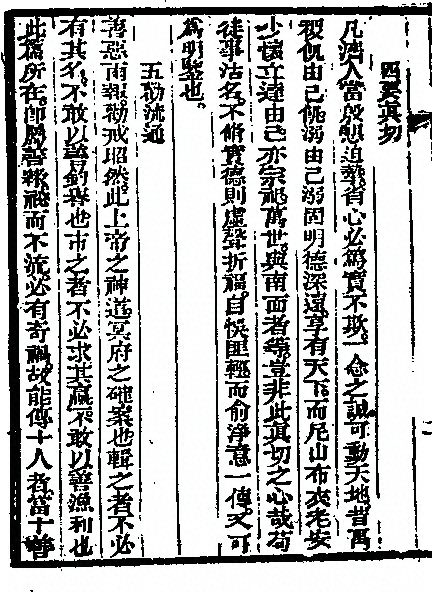 四要真切
凡濟人當啟懇迫，熱省心必篤實不欺。一念之誠，可動天地，昔禹
稷飢由己飢，溺由己溺，固明德深遠，享有天下，而尼山布衣，老安
少懷，立達由己，亦宗祀萬世，與南面者等，豈非此真切之心哉。苟
徒事沽名，不脩實德，則虛聲折福，自悞匪輕，而俞淨意一傳，又可
為明鑒也。
五勸流通
善惡兩報，勸戒昭然，此上帝之神道，冥府之確案也。輯之者不必
有其名，不敢以善釣譽也。市之者不必求其贏，不敢以善漁利也。
此篇所在，即屬善報，祕而不流，必有奇禍，故能傳十人者，當十善